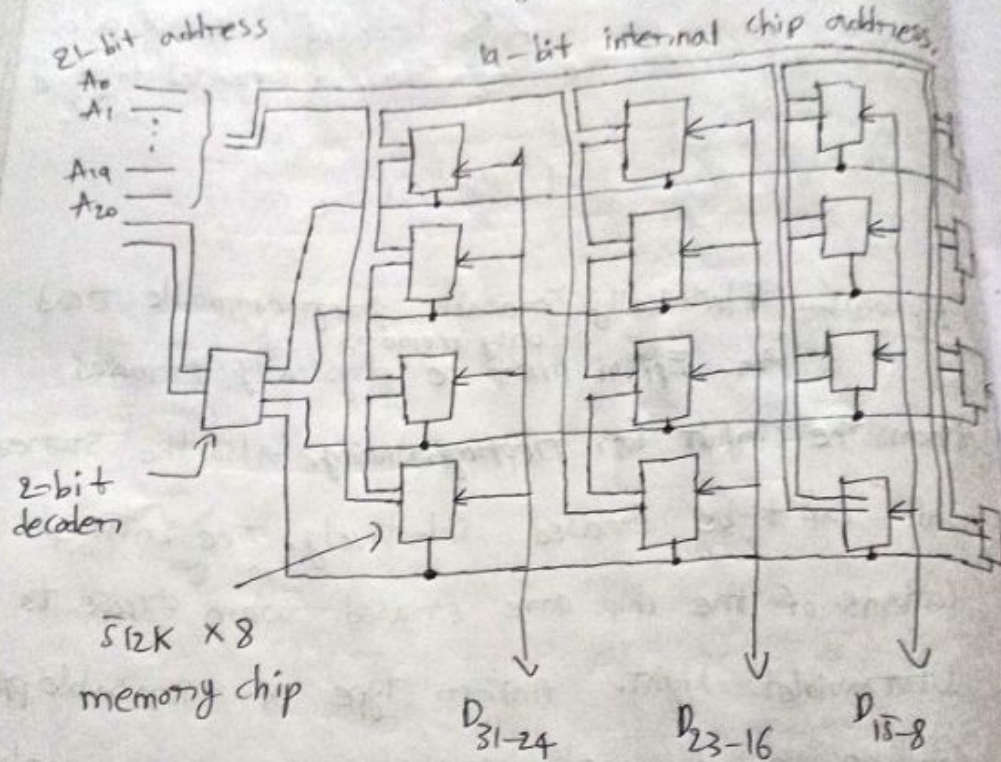 21-bit address
19-bit internal chip address.
A0
A1
A19
A20
2-bit
decoder
512K × 8
memory chip
D31-24
D23-16
D15-8